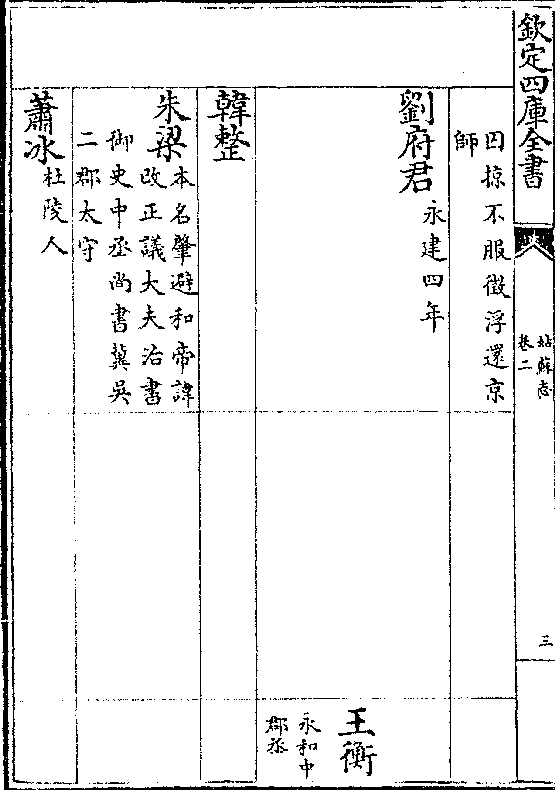 欽定四庫全書
姑蘇志
卷二
三
囚掠不服徵浮還京
師
劉府君
永建四年
王衡
永和中
郡丞
韓整
朱梁
本名肇避和帝諱
改正議大夫治書
御史中丞尚書冀吳
二郡太守
蕭冰
杜陵人